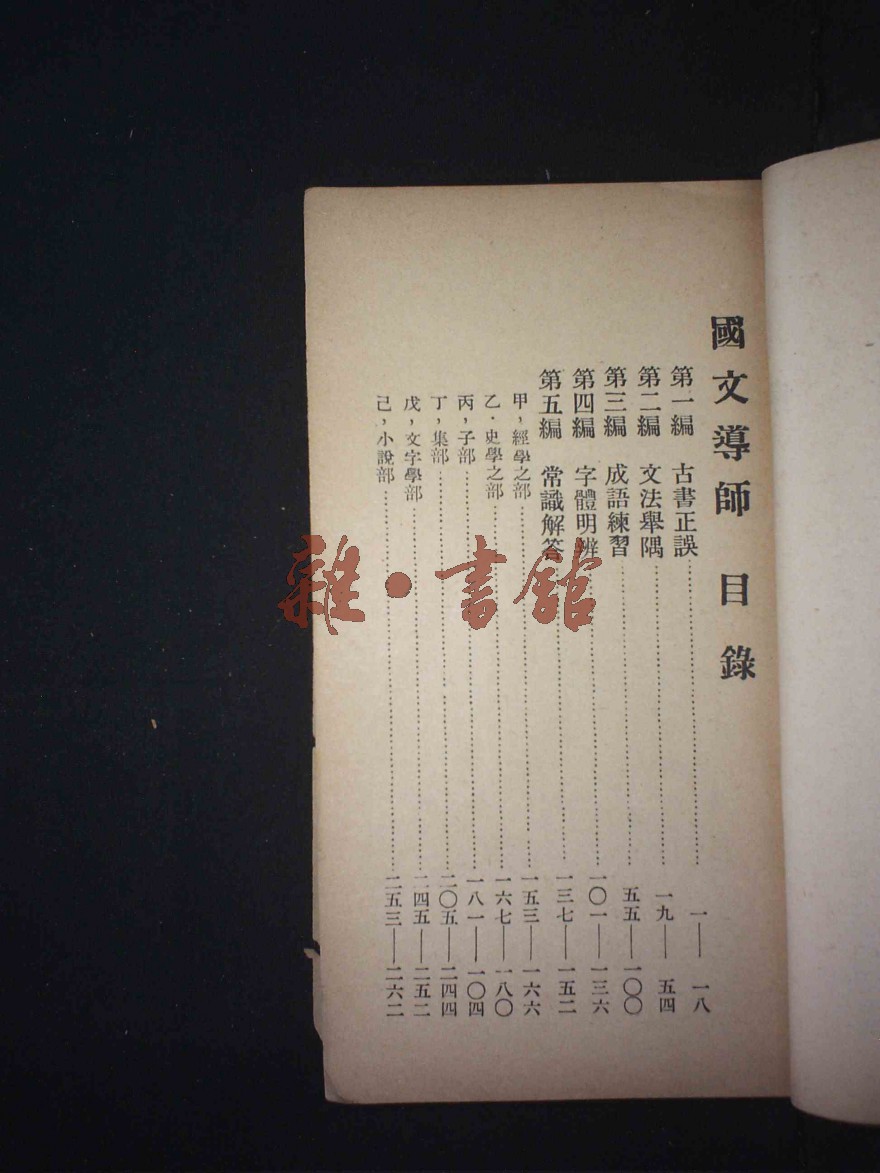 國文導師 目錄
第一編 古書正誤……一——一八
第二編 文法舉隅……一九——五四
第三編 成語練習……五五——一〇〇
第四編 字體明辨……一〇一——一三六
第五編 常識解答……一三七——一五二
甲，經學之部……一五三——一六六
乙．史學之部……一六七——一八〇
丙，子部……一八一——一〇四
丁，集部……二〇五——二四四
戊，文字學部……二四五——二五二
己，小說部……二五三——二六二
雜·書館